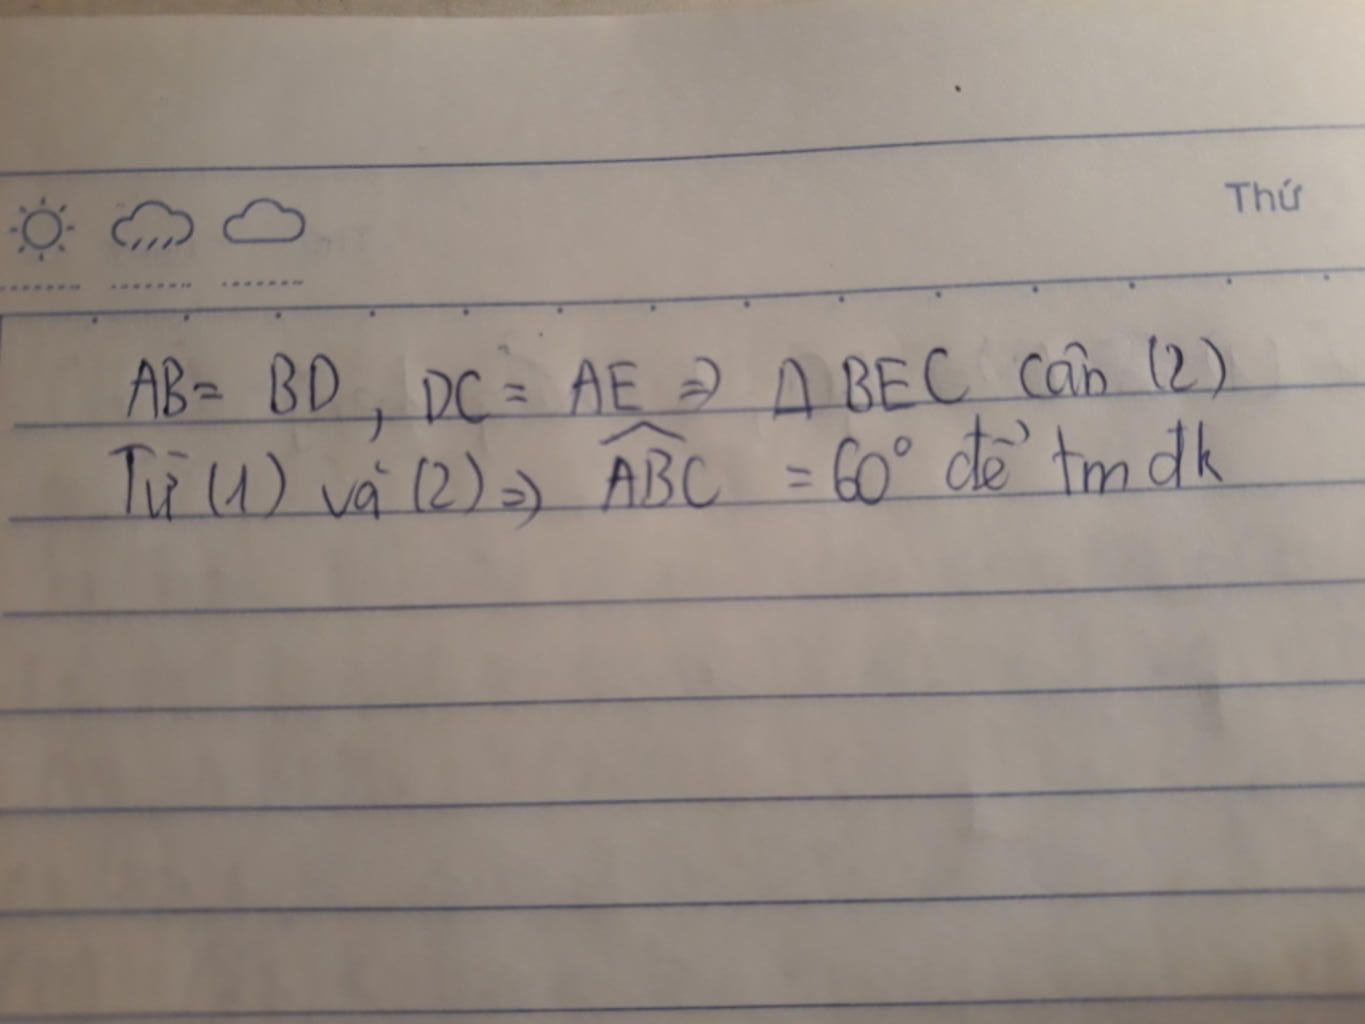 Thứ
AB = BD, DC = AE => Δ BEC cân (2)
Từ (1) và (2) => \widehat{ABC} = 60° để tm đk